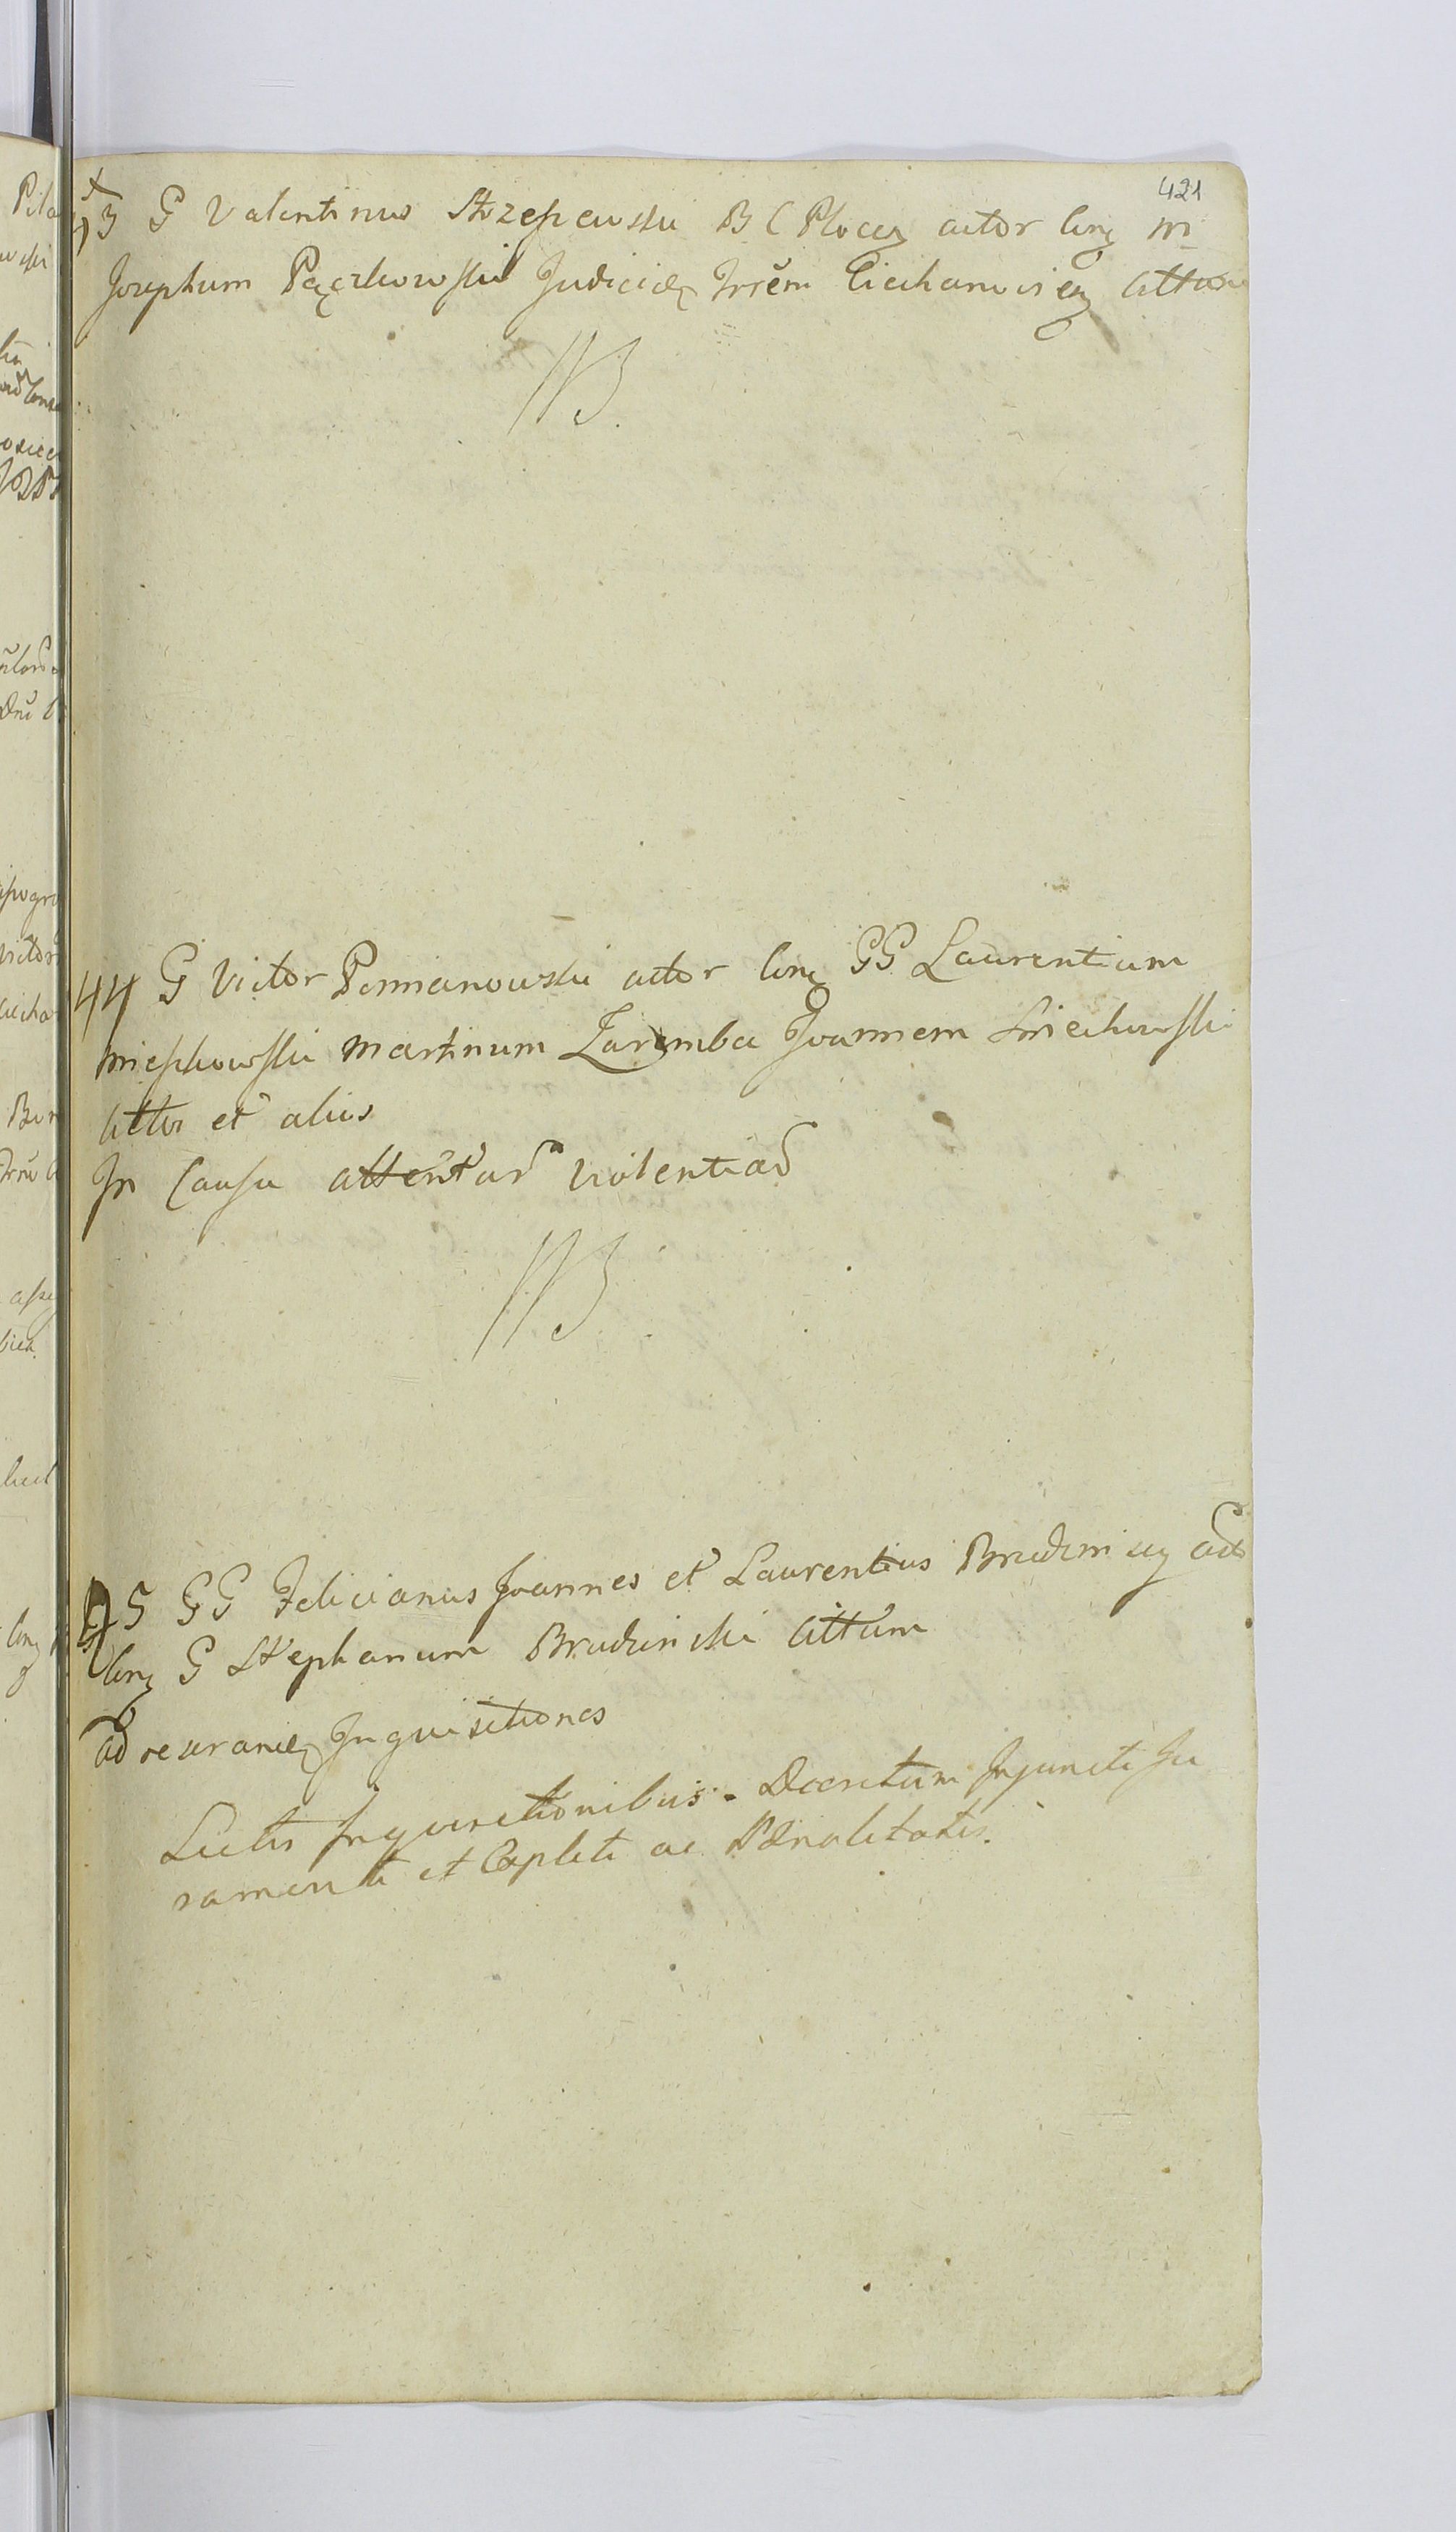 421
43 G Valentinus Strzeszewski B C Plocen actor Con M
Josephum Pączkowski Judicialem Trrem Ciechanovien Cittum
44 G Victor Pomianowski actor Con GG Laurentium
Mieszkowski Martinum Zaremba Joannem
Cittos et alios
In Causa attentar violentiar
45 GG Felicianus Joannes et Laurentius Brudzinscy act
Con G Stephanum Brudzinski Cittum
ad reserand Inquisitiones
Lectis Inquisitionibus. Decretum Injuncti Ju
ramenti et Expleti ac Pœnalitatis.